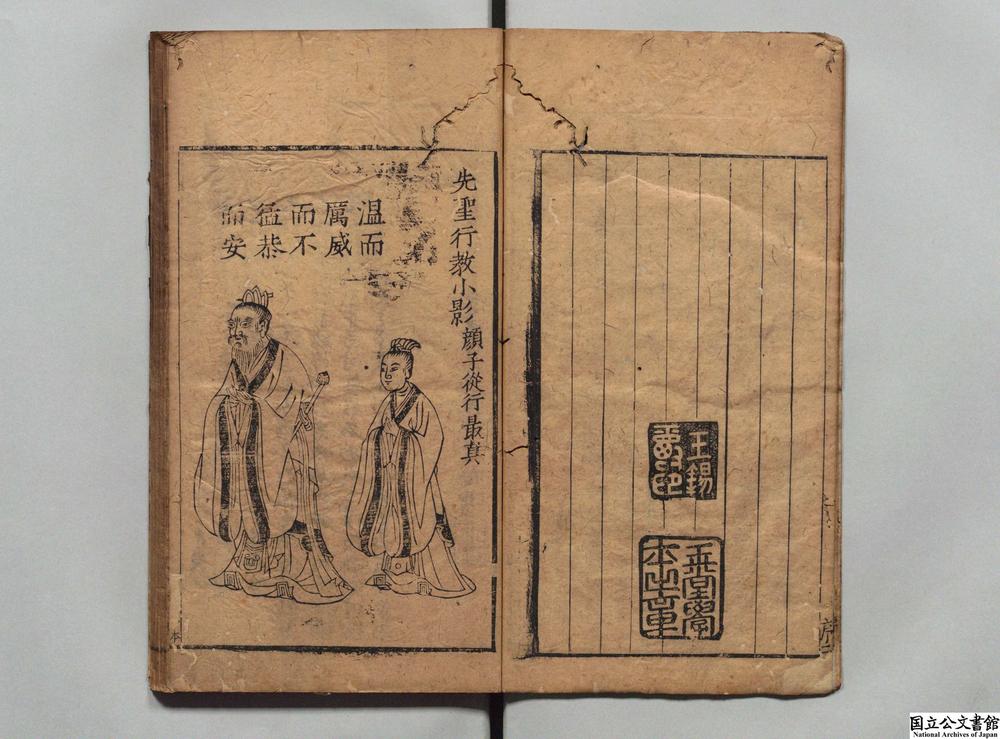 王錫
先聖行教小影顏子從行最真
溫而
厲威
而不
猛恭
而安
本
国立公文書館
National Archives of Japan